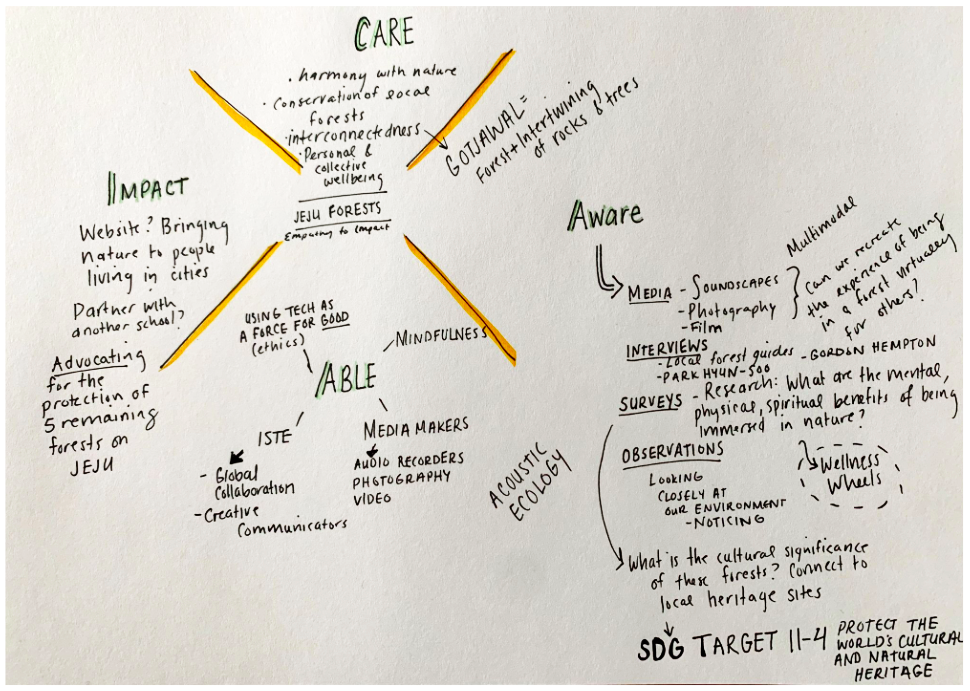 CARE
• harmony with nature
• Conservation of local
forests
• interconnectedness
• Personal &
collective
wellbeing
GOTJAWAL =
Forest + Intertwining
of rocks & trees
JEJU FORESTS
Empathy to Impact
IMPACT
Website? Bringing
nature to people
living in cities
Partner with
another school?
Advocating
for the
protection of
5 remaining
forests on
JEJU
USING TECH AS
A FORCE FOR GOOD
(ethics)
MINDFULNESS
ABLE
ISTE
- Global
Collaboration
- Creative
Communicators
MEDIA MAKERS
AUDIO RECORDERS
PHOTOGRAPHY
VIDEO
ACOUSTIC
ECOLOGY
Aware
MEDIA - SOUNDSCAPES
- Photography
- Film
Multimodal
Can we recreate
the experience of being
in a forest virtually
for others?
INTERVIEWS
- Local forest guides - GORDON HEMPTON
- PARK HYUN-SOO
SURVEYS - Research: What are the mental,
physical, spiritual benefits of being
immersed in nature?
OBSERVATIONS
LOOKING
CLOSELY AT
OUR ENVIRONMENT
- NOTICING
Wellness
Wheels
What is the cultural significance
of these forests? Connect to
local heritage sites
SDG TARGET 11-4 PROTECT THE
WORLD'S CULTURAL
AND NATURAL
HERITAGE